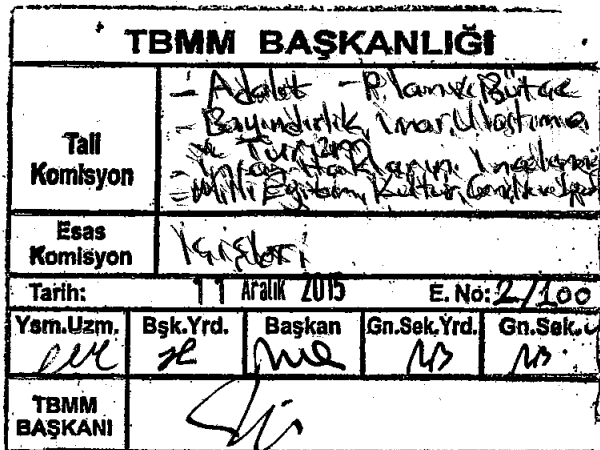 TBMM BAŞKANLIĞI
Tali Komisyon
- Adalet - Plan ve Bütçe
- Bayındırlık, İmar, Ulaştırma
ve Turizm
- İnsan Haklarını İnceleme
- Milli Eğitim, Kültür, Gençlik ve Spor
Esas Komisyon
İçişleri
Tarih: 11 Aralık 2015 E. No: 2/100
Ysm.Uzm. Bşk.Yrd. Başkan Gn.Sek.Yrd. Gn.Sek.
TBMM BAŞKANI